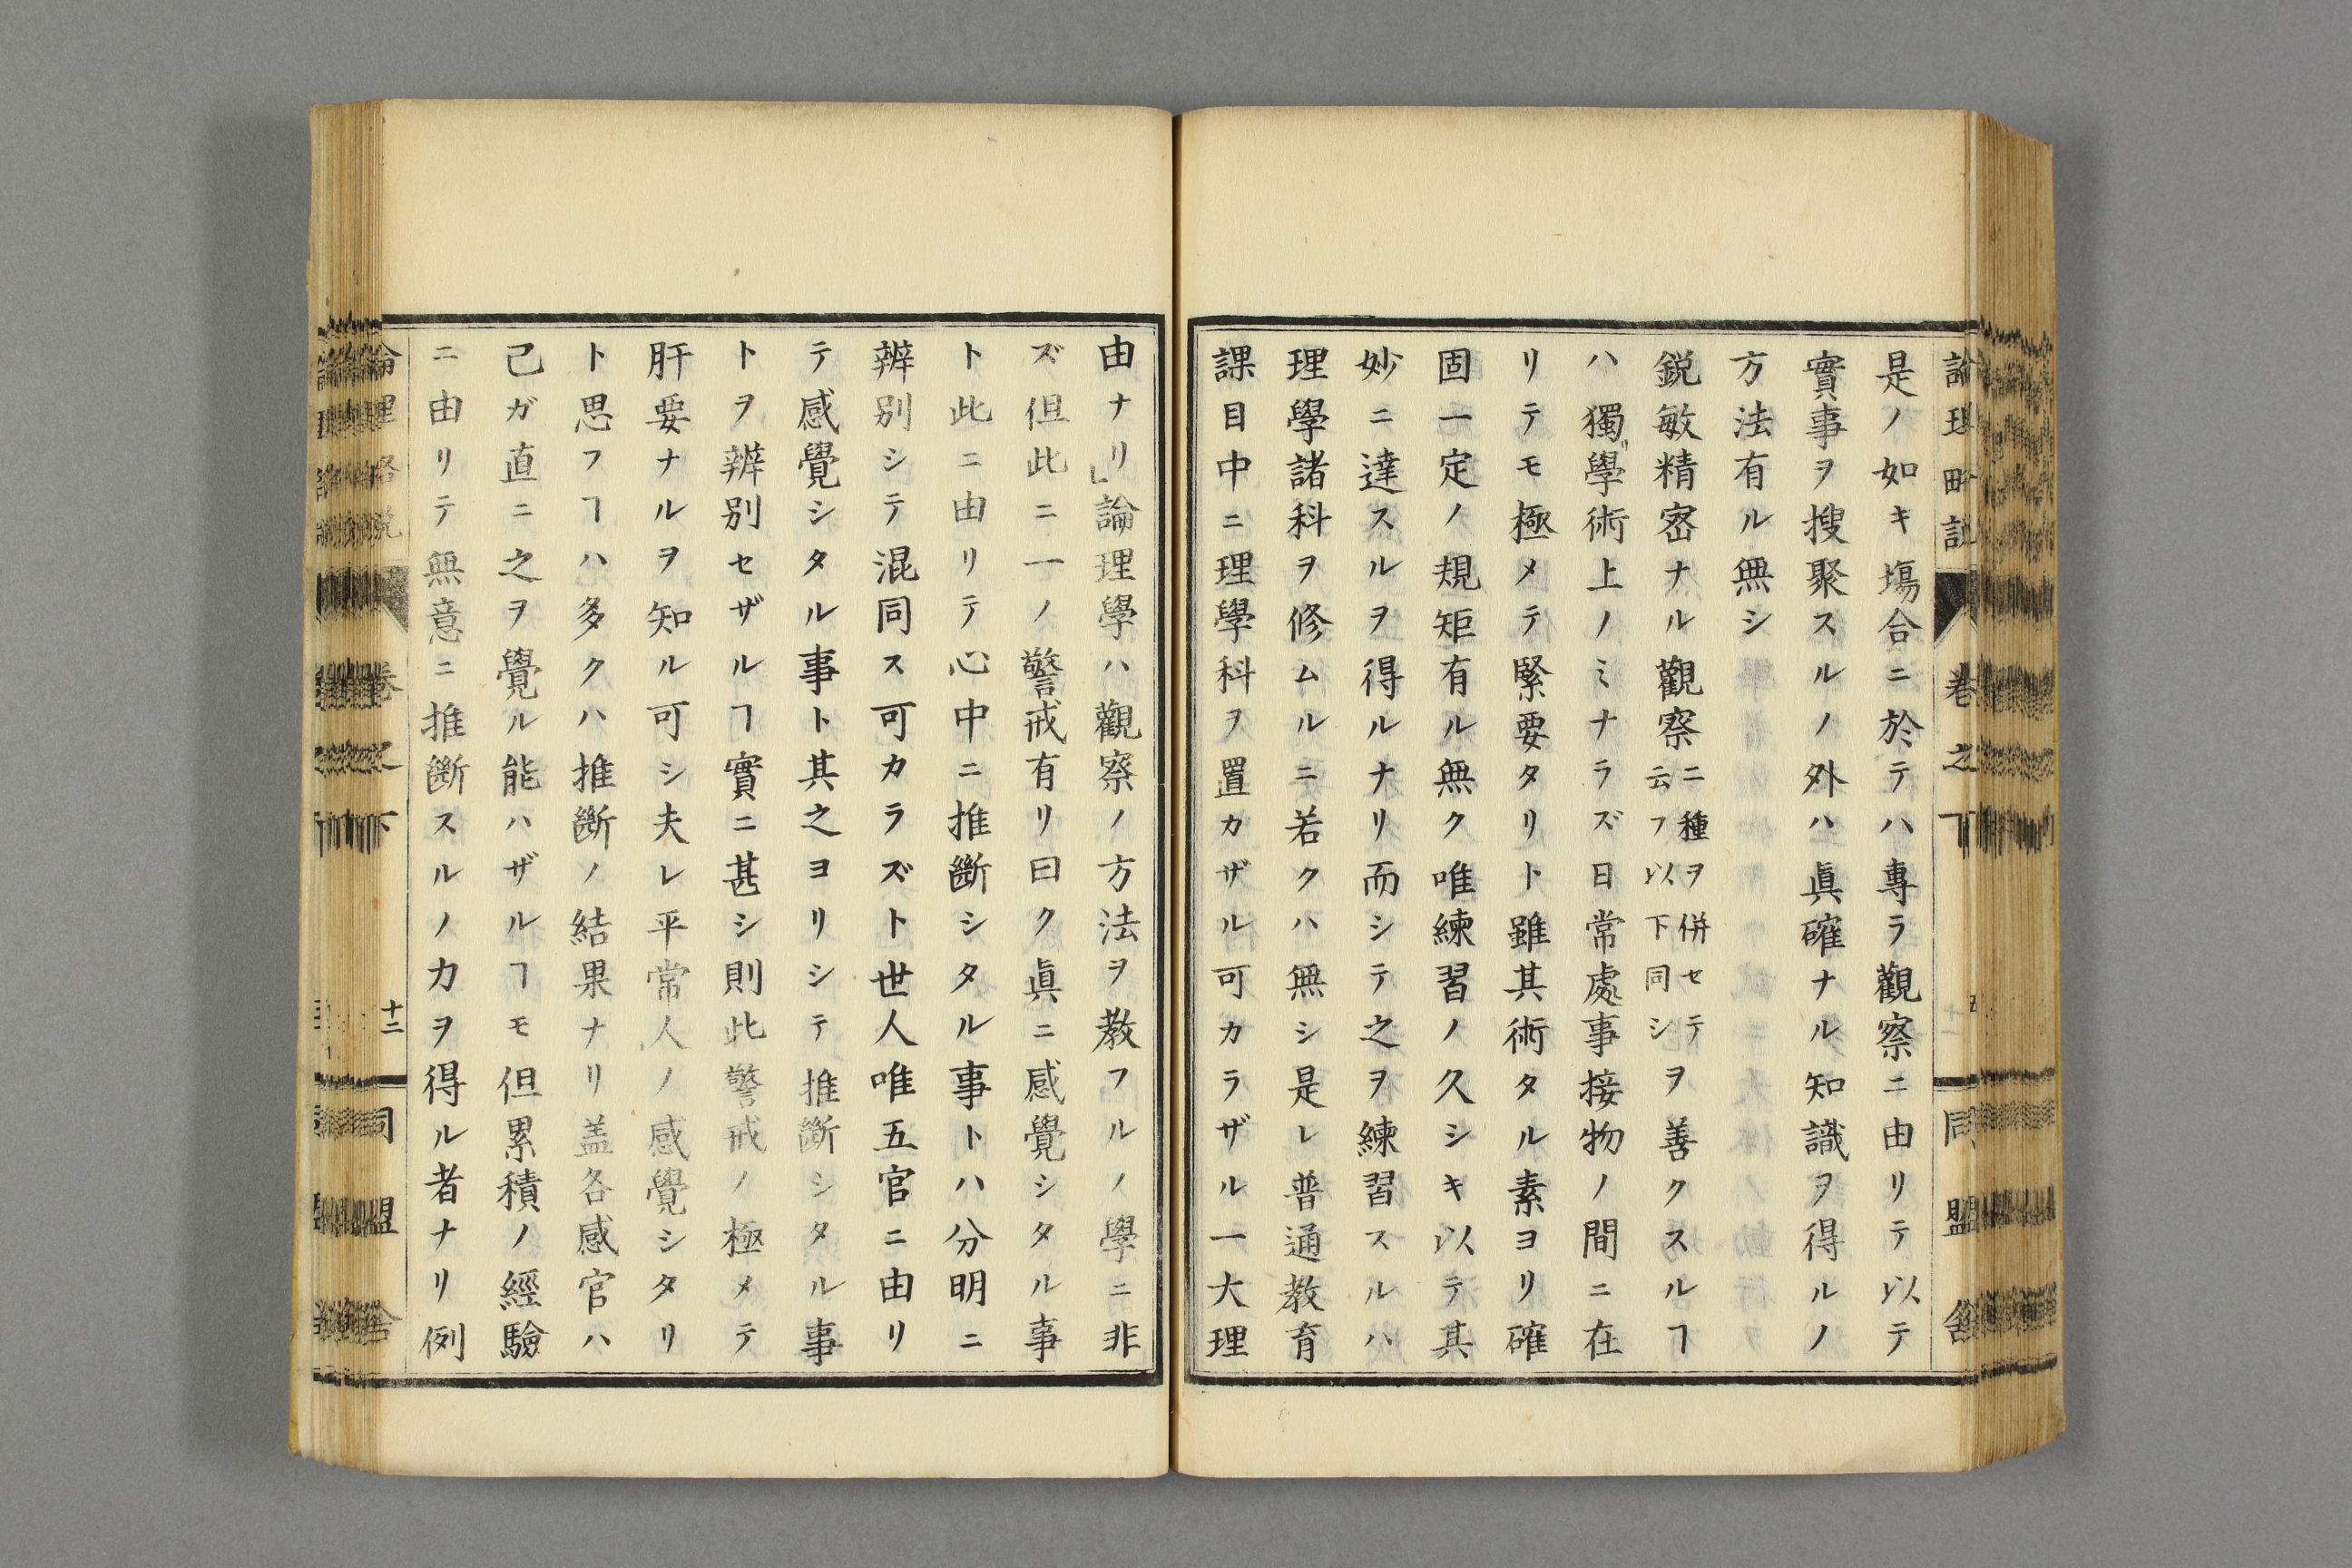 論理略説
卷之下
同盟舎
是ノ如キ塲合ニ於テハ專ラ觀察ニ由リテ以テ
實事ヲ搜聚スルノ外ハ眞確ナル知識ヲ得ルノ
方法有ル無シ
鋭敏精密ナル觀察二種ヲ併セテ云フ以下同シヲ善クスルヿ
ハ獨リ學術上ノミナラズ日常處事接物ノ間ニ在
リテモ極メテ緊要タリト雖其術タル素ヨリ確
固一定ノ規矩有ル無ク唯練習ノ久シキ以テ其
妙ニ達スルヲ得ルナリ而シテ之ヲ練習スルハ
理學諸科ヲ修ムルニ若クハ無シ是レ普通教育
課目中ニ理學科ヲ置カザル可カラザル一大理
由ナリ」論理學ハ觀察ノ方法ヲ教フルノ學ニ非
ズ但此ニ一ノ警戒有リ曰ク眞ニ感覺シタル事
ト此ニ由リテ心中ニ推斷シタル事トハ分明ニ
辨別シテ混同ス可カラズト世人唯五官ニ由リ
テ感覺シタル事ト其之ヨリシテ推斷シタル事
トヲ辨別セザルヿ實ニ甚シ則此警戒ノ極メテ
肝要ナルヲ知ル可シ夫レ平常人ノ感覺シタリ
ト思フヿハ多クハ推斷ノ結果ナリ盖各感官ハ
己ガ直ニ之ヲ覺ル能ハザルヿモ但累積ノ經驗
ニ由リテ無意ニ推斷スルノ力ヲ得ル者ナリ例
論理略説
卷之下
十二
同盟舎